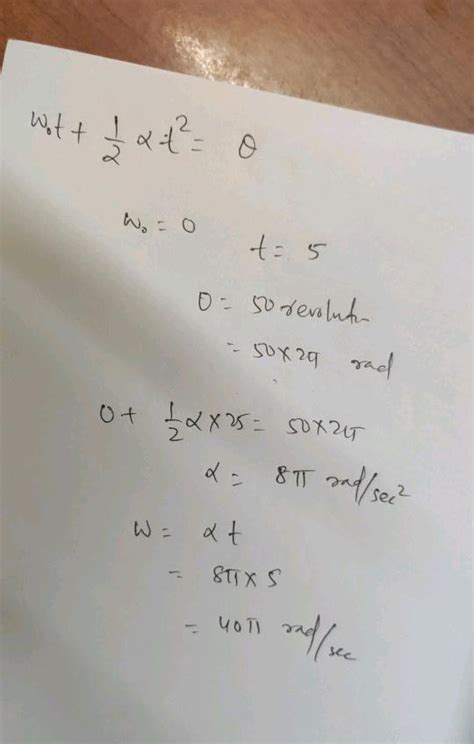 w₀t + 1/2 αt² = θ
w₀ = 0
t = 5
θ = 50 revolutn
= 50×2π rad
0 + 1/2 α×25 = 50×2π
α = 8π rad/sec²
w = αt
= 8π×5
= 40π rad/sec